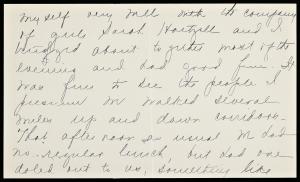 myself very well with the company
of girls Sarah and I
about together most of the
evening and had good fun. It
was fun to see the people I
We walked several
miles up and down corridors.
That afternoon as usual we had
no regular lunch, but had one
doled out to us, something like